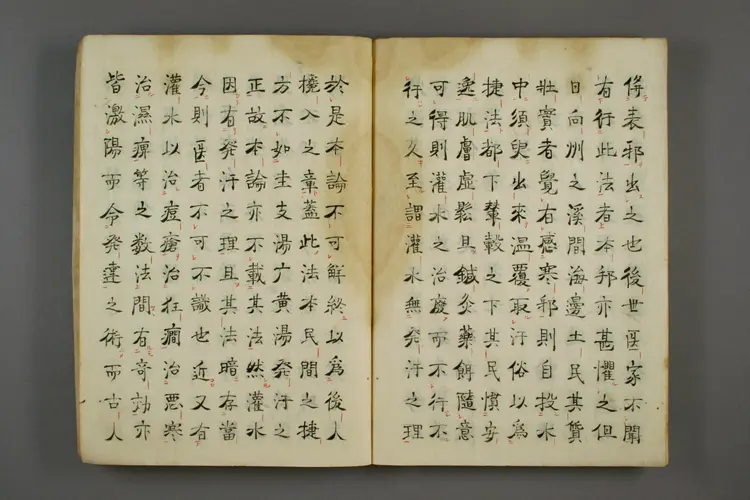 表邪出之也後世医家不聞
有行此法者本邦亦甚懼之但
日向州之溪間海邊土民其質
壯實者覺有感寒邪則自投水
中須臾出來温覆取汗俗以為
捷法都下輦轂之下其民慣安
逸肌膚虛鬆其鍼灸藥餌隨意
可得則灌水之治廢而不行不
行之久至謂灌水無発汗之理
於是本論不可解終以為後人
攙入之章蓋此法本民間之捷
方不如圭支湯广黄湯発汗之
正故本論亦不載其法然灌水
因有発汗之理且其法暗存當
今則医者不可不識也近又有
灌水以治痘瘡治狂癇治悪寒
治濕痺等之数法間有奇効亦
皆激陽而令発達之術而古人